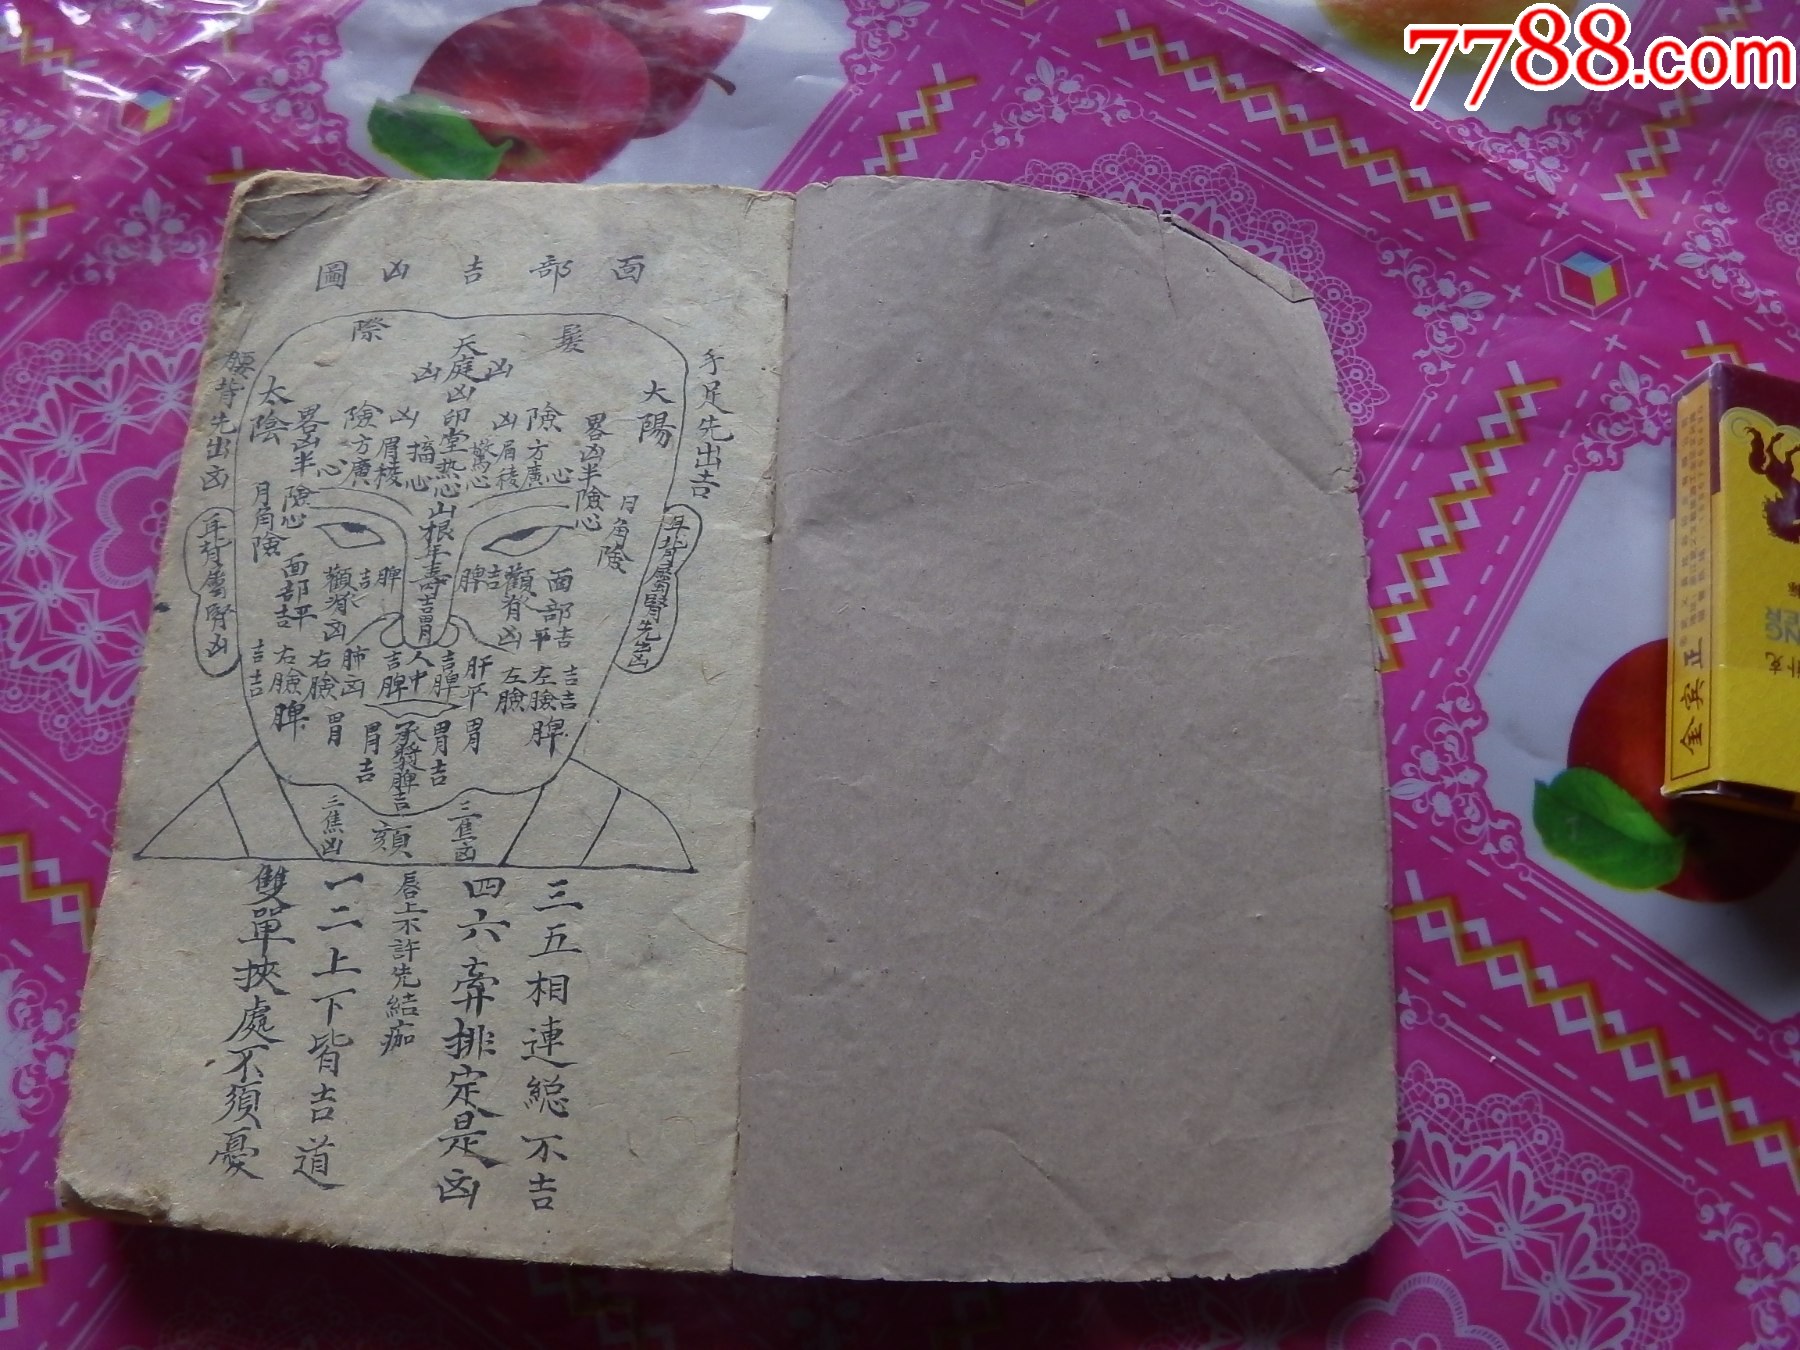 7788.com
面部吉凶圖
髮際
手足先出吉
腰背先出凶
太陽
太陰
天庭凶印堂熱心山根年壽吉胃
凶
凶
險方廣心
險方廣心
凶眉稜
凶眉稜
驚心
畧凶半險心
畧凶半險心
月角險
面部平吉
面部平吉
顴脊凶
脾吉
脾吉
人中
吉脾
吉脾
肝平
肺凶
左臉
左臉脾
右臉
右臉脾
吉吉
吉吉
胃
胃
胃吉
胃吉
承漿脾吉
頦
三焦凶
三焦凶
三五相連総不吉
四六弆排定是凶
唇上不許先結痂
一二上下皆吉道
雙單挾處不須憂
金宾正